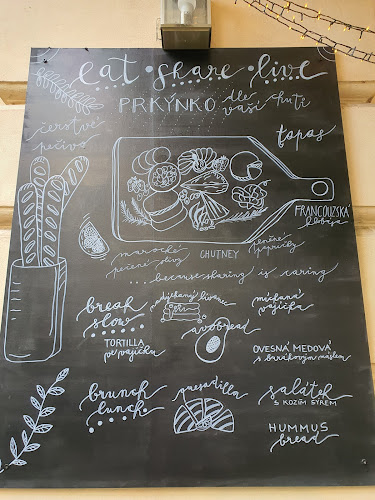 eat • share • live
PRKÝNKO dle vaší chuti
čerstvé pečivo
tapas
FRANCOUZSKÁ klobása
marocké pečené olivy
CHUTNEY
plněné papričky
...because sharing is caring
break slow
nadýchaný lívanec
míchaná vajíčka
avobread
TORTILLA ve vajíčku
OVESNÁ MEDOVÁ
s burákovým máslem
brunch lunch
quesadilla
salátek
S KOZÍM SÝREM
HUMMUS bread